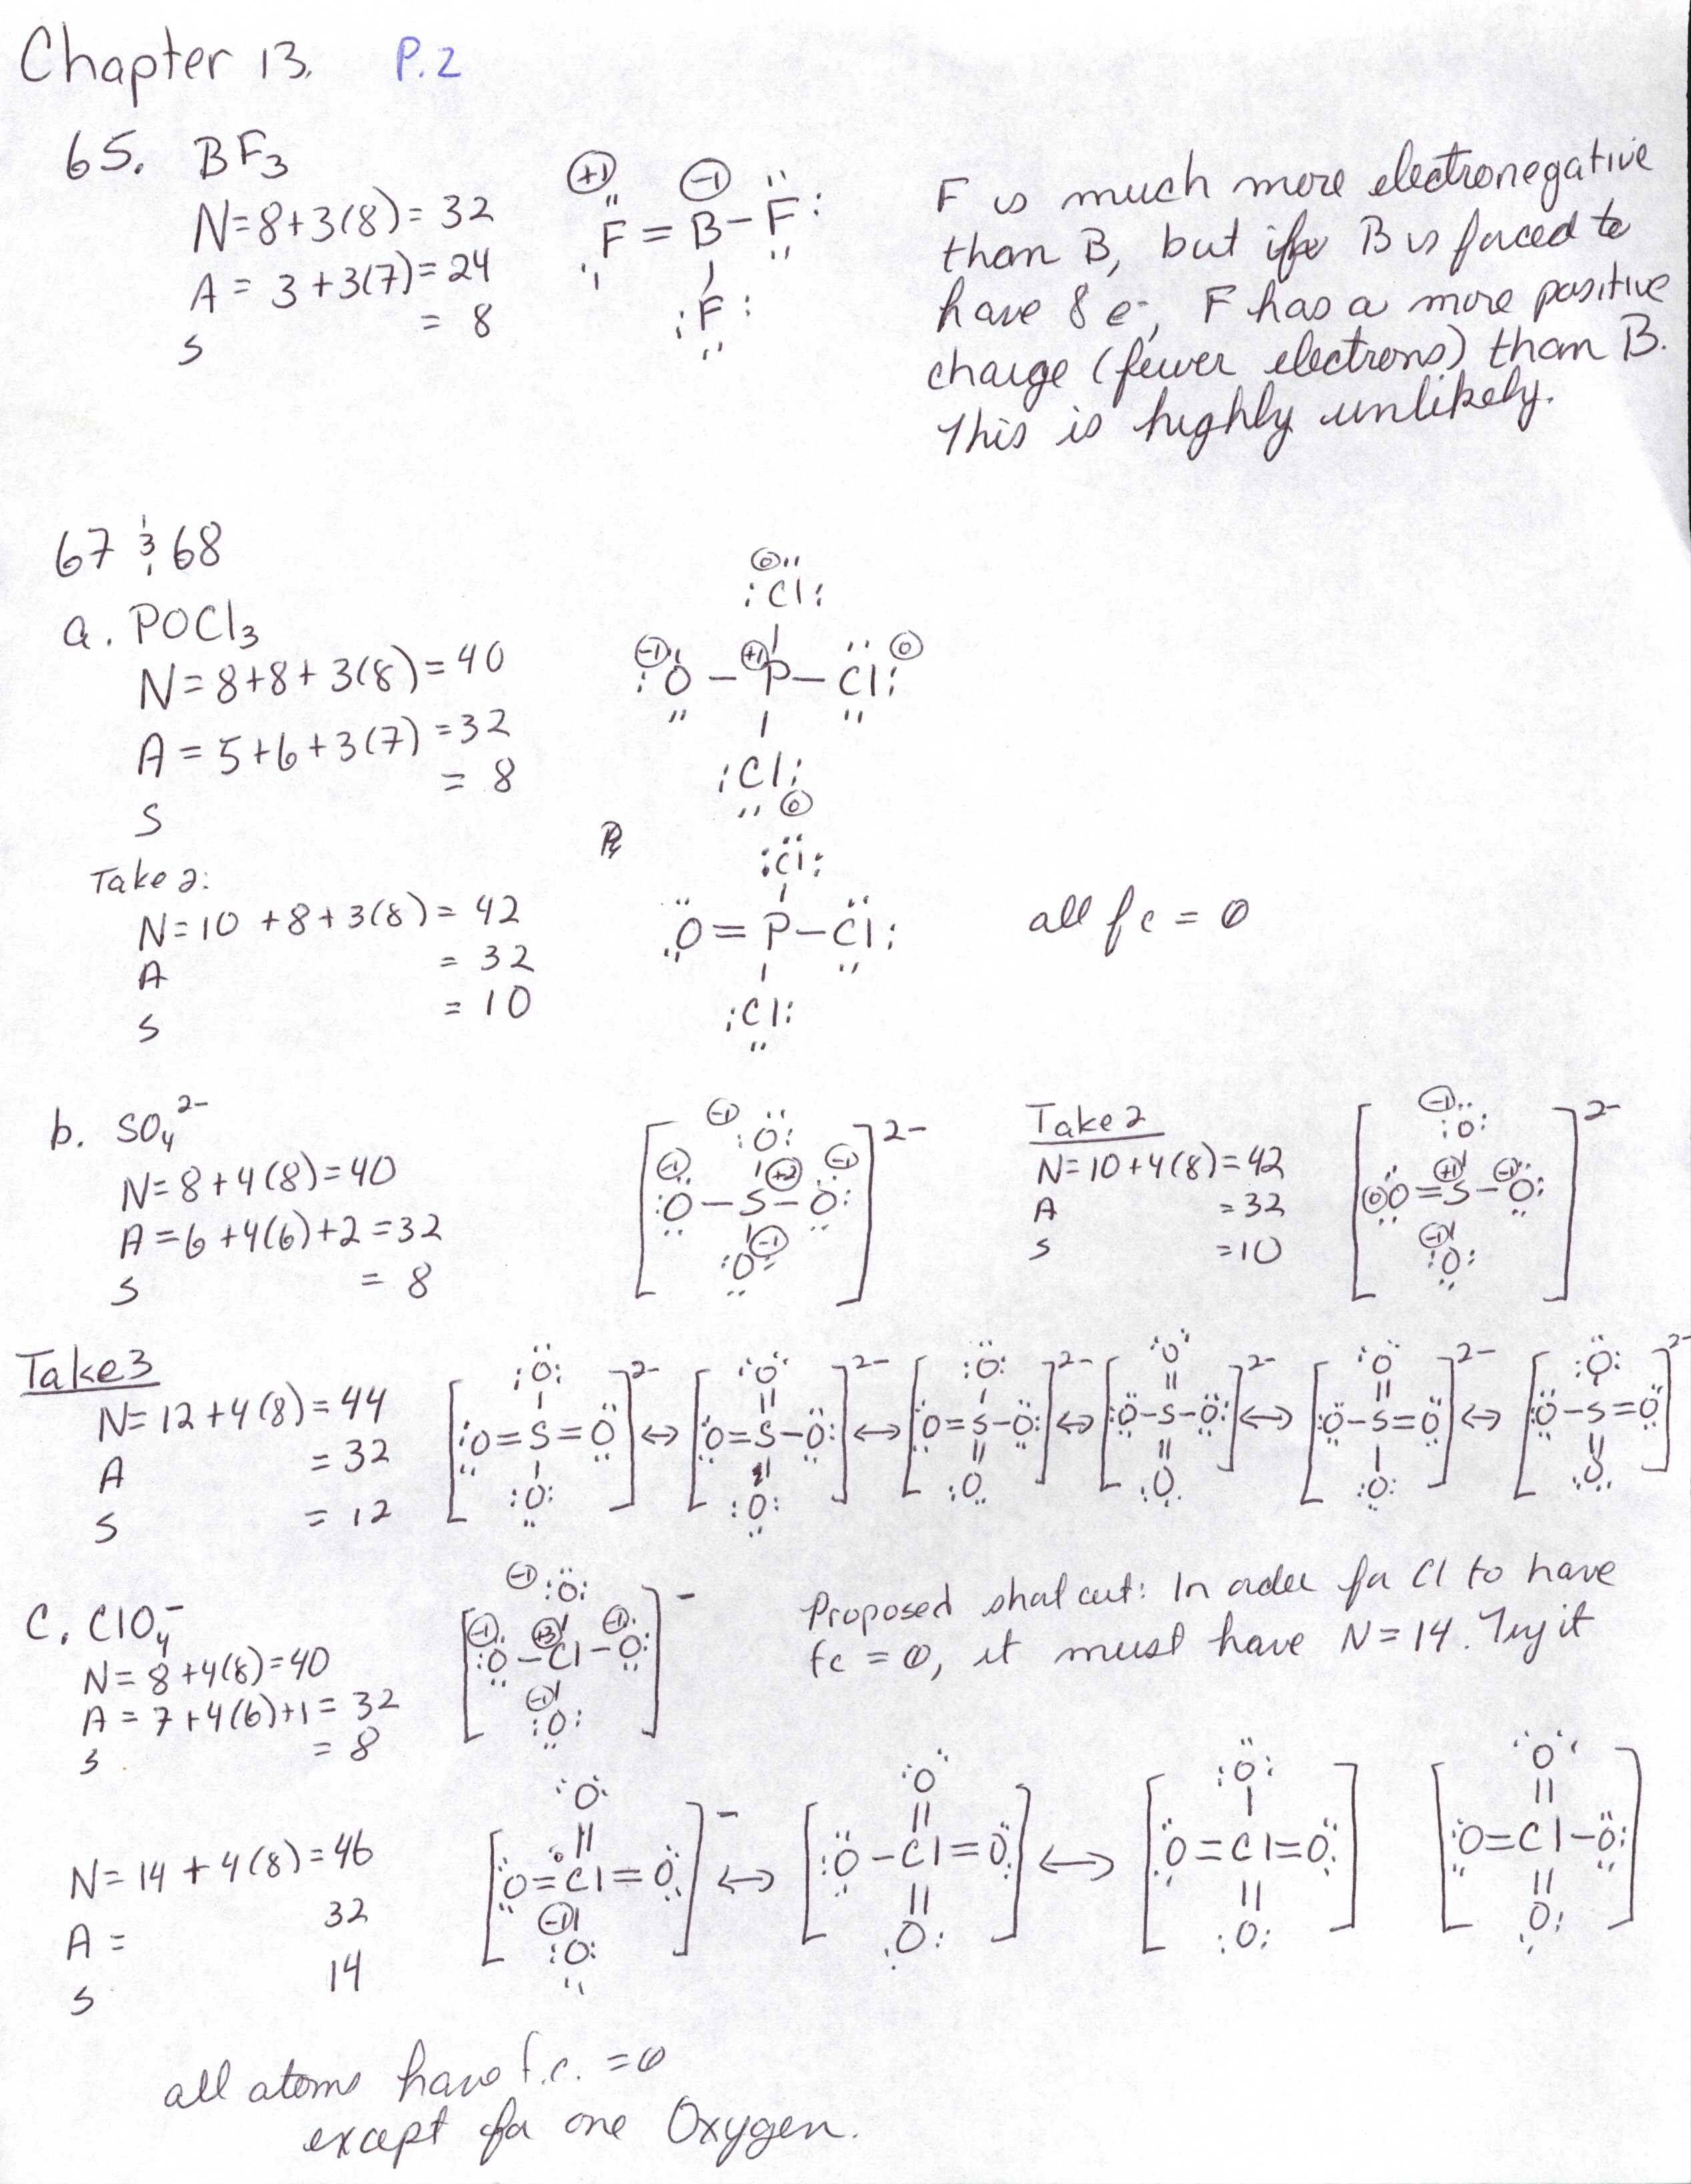 Chapter 13. P.2
65. BF3
N=8+3(8)=32
A = 3+3(7)=24
= 8
S
+1 -1
F = B - F
F
F is much more electronegative
than B, but if B is forced to
have 8 e-, F has a more positive
charge (fewer electrons) than B.
This is highly unlikely.
67 & 68
a. POCl3
N=8+8+3(8)=40
A = 5+6+3(7)=32
= 8
S
0
Cl
-1 +1 0
O - P - Cl
Cl
0
Take 2:
N=10 +8+3(8)= 42
A = 32
S = 10
Cl
O = P - Cl
Cl
all fc = 0
b. SO4 2-
N=8+4(8)=40
A=6+4(6)+2=32
S = 8
-1 O 2-
-1 +2 -1
O - S - O
-1
O
Take 2
N=10+4(8)=42
A =32
S =10
-1 O 2-
+1 -1
0 O = S - O
-1
O
Take 3
N=12+4(8)=44
A = 32
S = 12
O 2- O 2- O 2- O 2- O 2- O 2-
O=S=O ↔ O=S-O ↔ O=S-O ↔ O-S-O ↔ O-S=O ↔ O-S=O
O O O O O O
C. ClO4-
N=8+4(8)=40
A = 7+4(6)+1=32
S = 8
-1 O -
-1 +3 -1
O - Cl - O
-1
O
Proposed short cut: In order for Cl to have
fc = 0, it must have N=14. Try it
N=14+4(8)=46
A = 32
S 14
O - O O O
O=Cl=O ↔ O-Cl=O ↔ O=Cl=O O=Cl-O
-1
O O O O
all atoms have f.c. =0
except for one Oxygen.